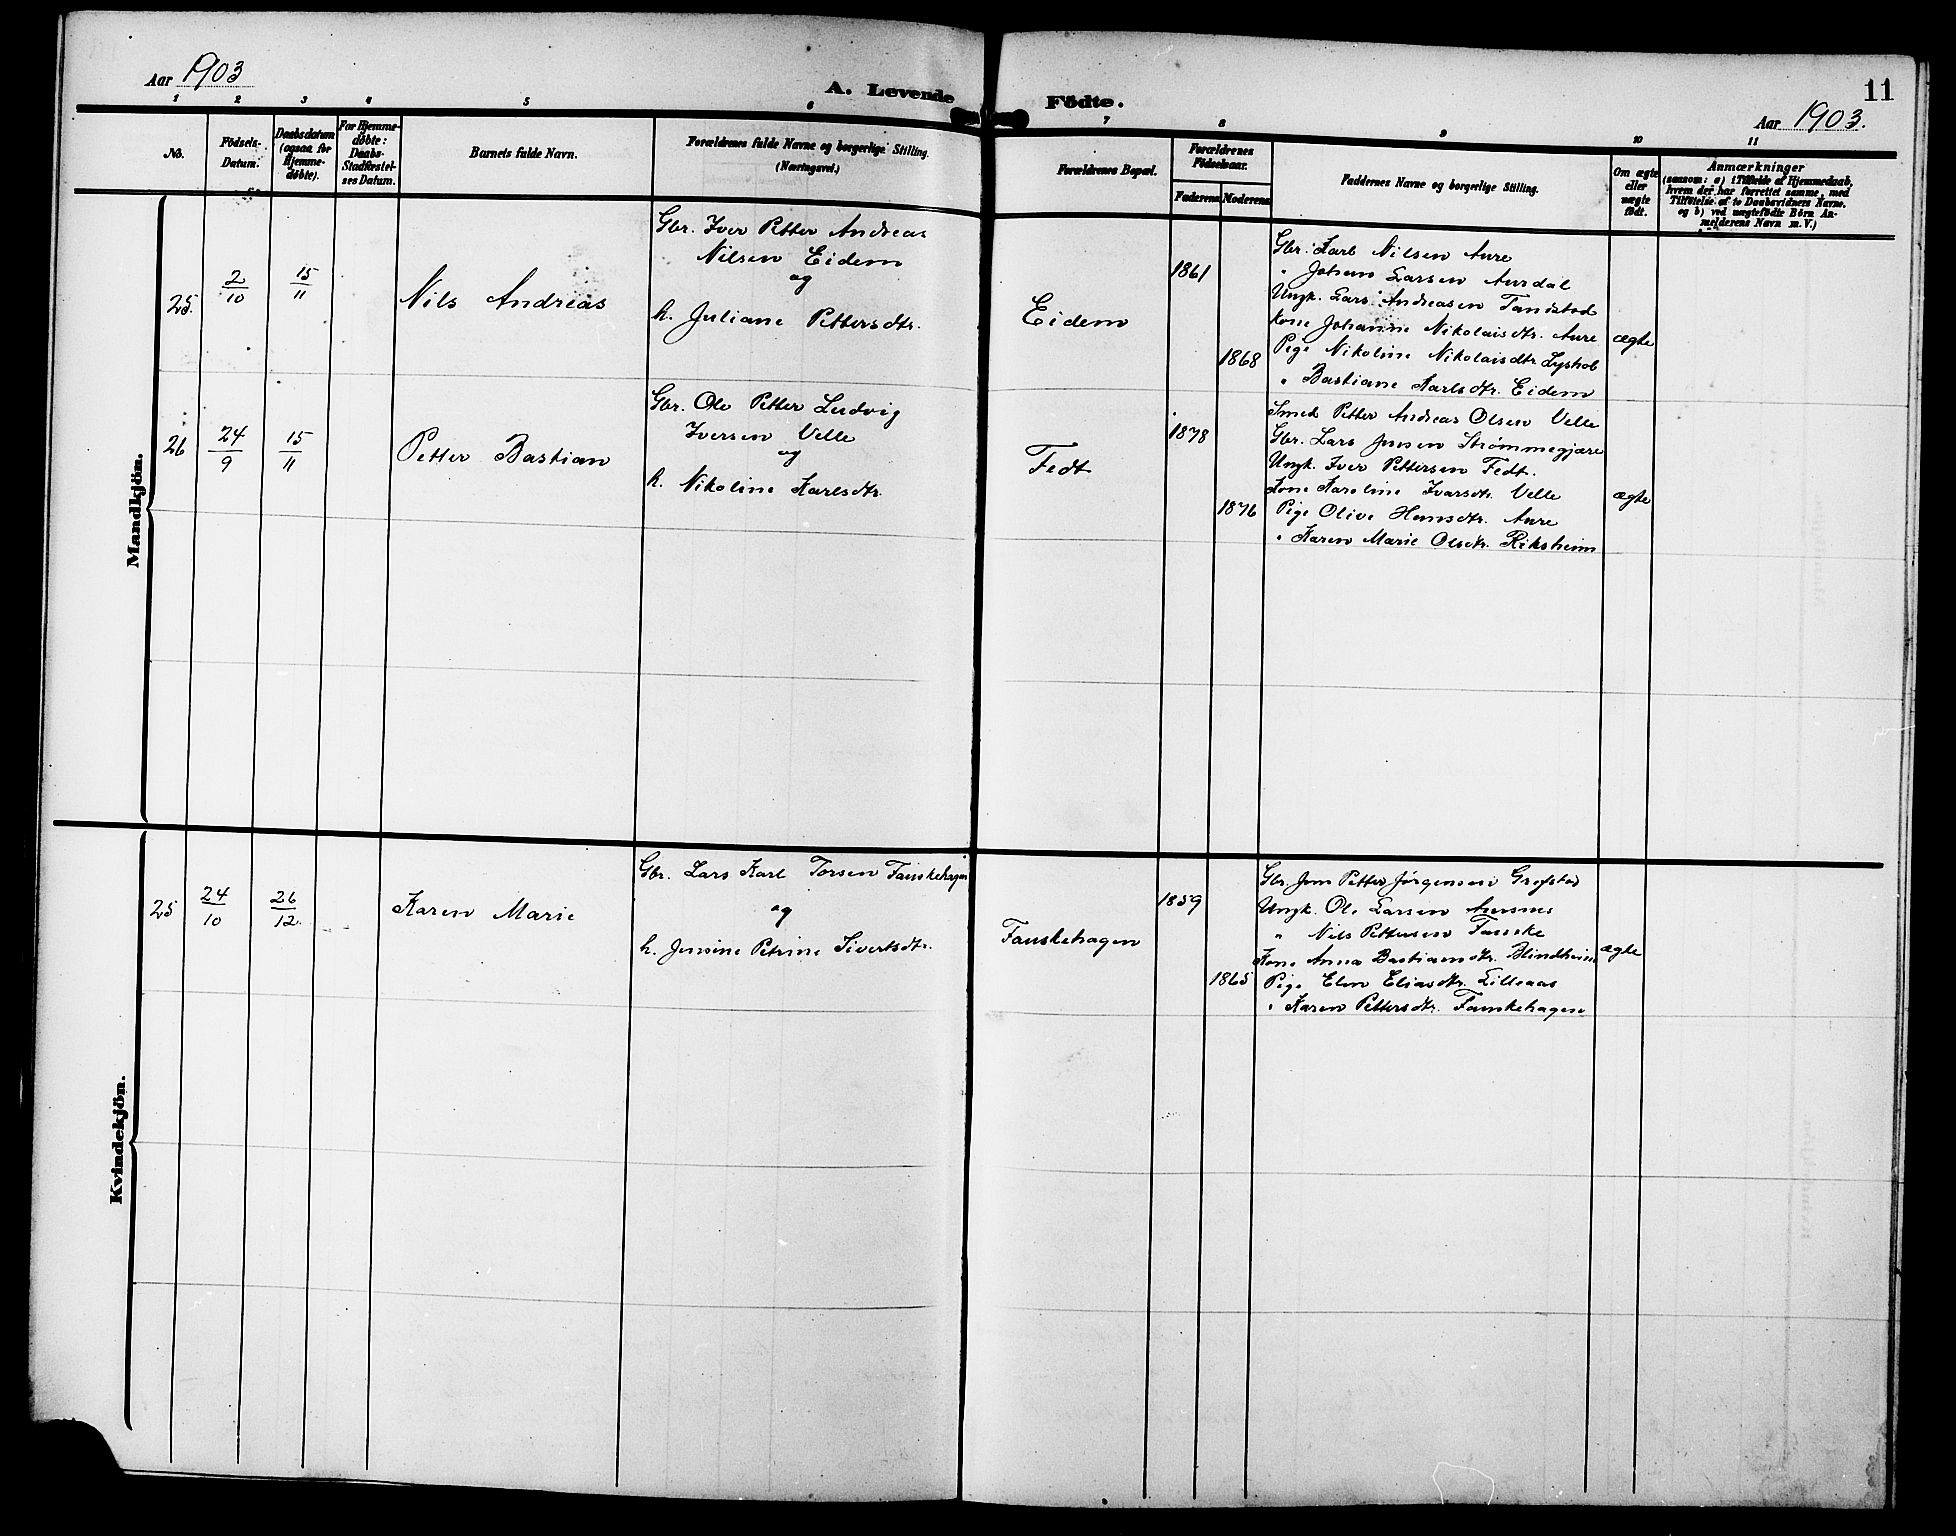 Aar 1903
A. Levende Födte.
11
Aar 1903.
1 2 3 4 5 6 7 8 9 10 11
No.
Födsels-
Datum.
Daabsdatum
(ogsaa for
Hjemme-
døbte).
For Hjemme-
døbte:
Daabs-
Stadfæstel-
ses Datum.
Barnets fulde Navn.
Forældrenes fulde Navne og borgerlige Stilling.
(Næringsvei.)
Forældrenes Bopæl.
Forældrenes
Födselsaar.
Faderens Moderens
Faddernes Navne og borgerlige Stilling.
Om ægte
eller
uægte
födt.
Anmærkninger
(saasom: a) i Tilfælde af Hjemmedaab,
hvem der har forrettet samme, med
Tilföielse af to Daabsvidners Navne,
og b) ved uægtefödte Börn An-
melderens Navn m. V.)
Mandkjön.
25.
2/10
15/11
Nils Andreas
Gbr. Iver Petter Andreas
Nilsen Eidem
og
h. Juliane Pettersdtr.
Eidem
1861
1868
Gbr. Karl Nilsen Aure
" Johan Larsen Aurdal
Ungk. Lars Andreasen Tandstad
Kone Johanne Nikolaisdtr. Aure
Pige Nikoline Nikolaisdtr Lyshol
" Bastiane Karlsdtr. Eidem
ægte
26
24/9
15/11
Petter Bastian
Gbr. Ole Petter Ludvig
Iversen Velle
og
h. Nikoline Karlsdtr.
Fedt
1878
1876
Smed Petter Andreas Olsen Velle
Gbr. Lars Jensen Strømmegjære
Ungk. Iver Pettersen Fedt.
Kone Karoline Ivarsdtr. Velle
Pige Olive Hansdtr. Aure
" Karen Marie Olsdtr. Riksheim
ægte
Kvindekjön.
25
24/10
26/12.
Karen Marie
Gbr. Lars Karl Torsen Fauskehagen
og
h. Jensine Petrine Sivertsdtr.
Fauskehagen
1859
1865
Gbr. Jens Petter Jørgensen Grefstad
Ungk. Ole Larsen Aursnes
" Nils Pettersen Fauske
Kone Anna Bastiansdtr. Blindheim
Pige Elen Eliasdtr. Lilleaas
" Karen Pettersdtr. Fauskehagen
ægte